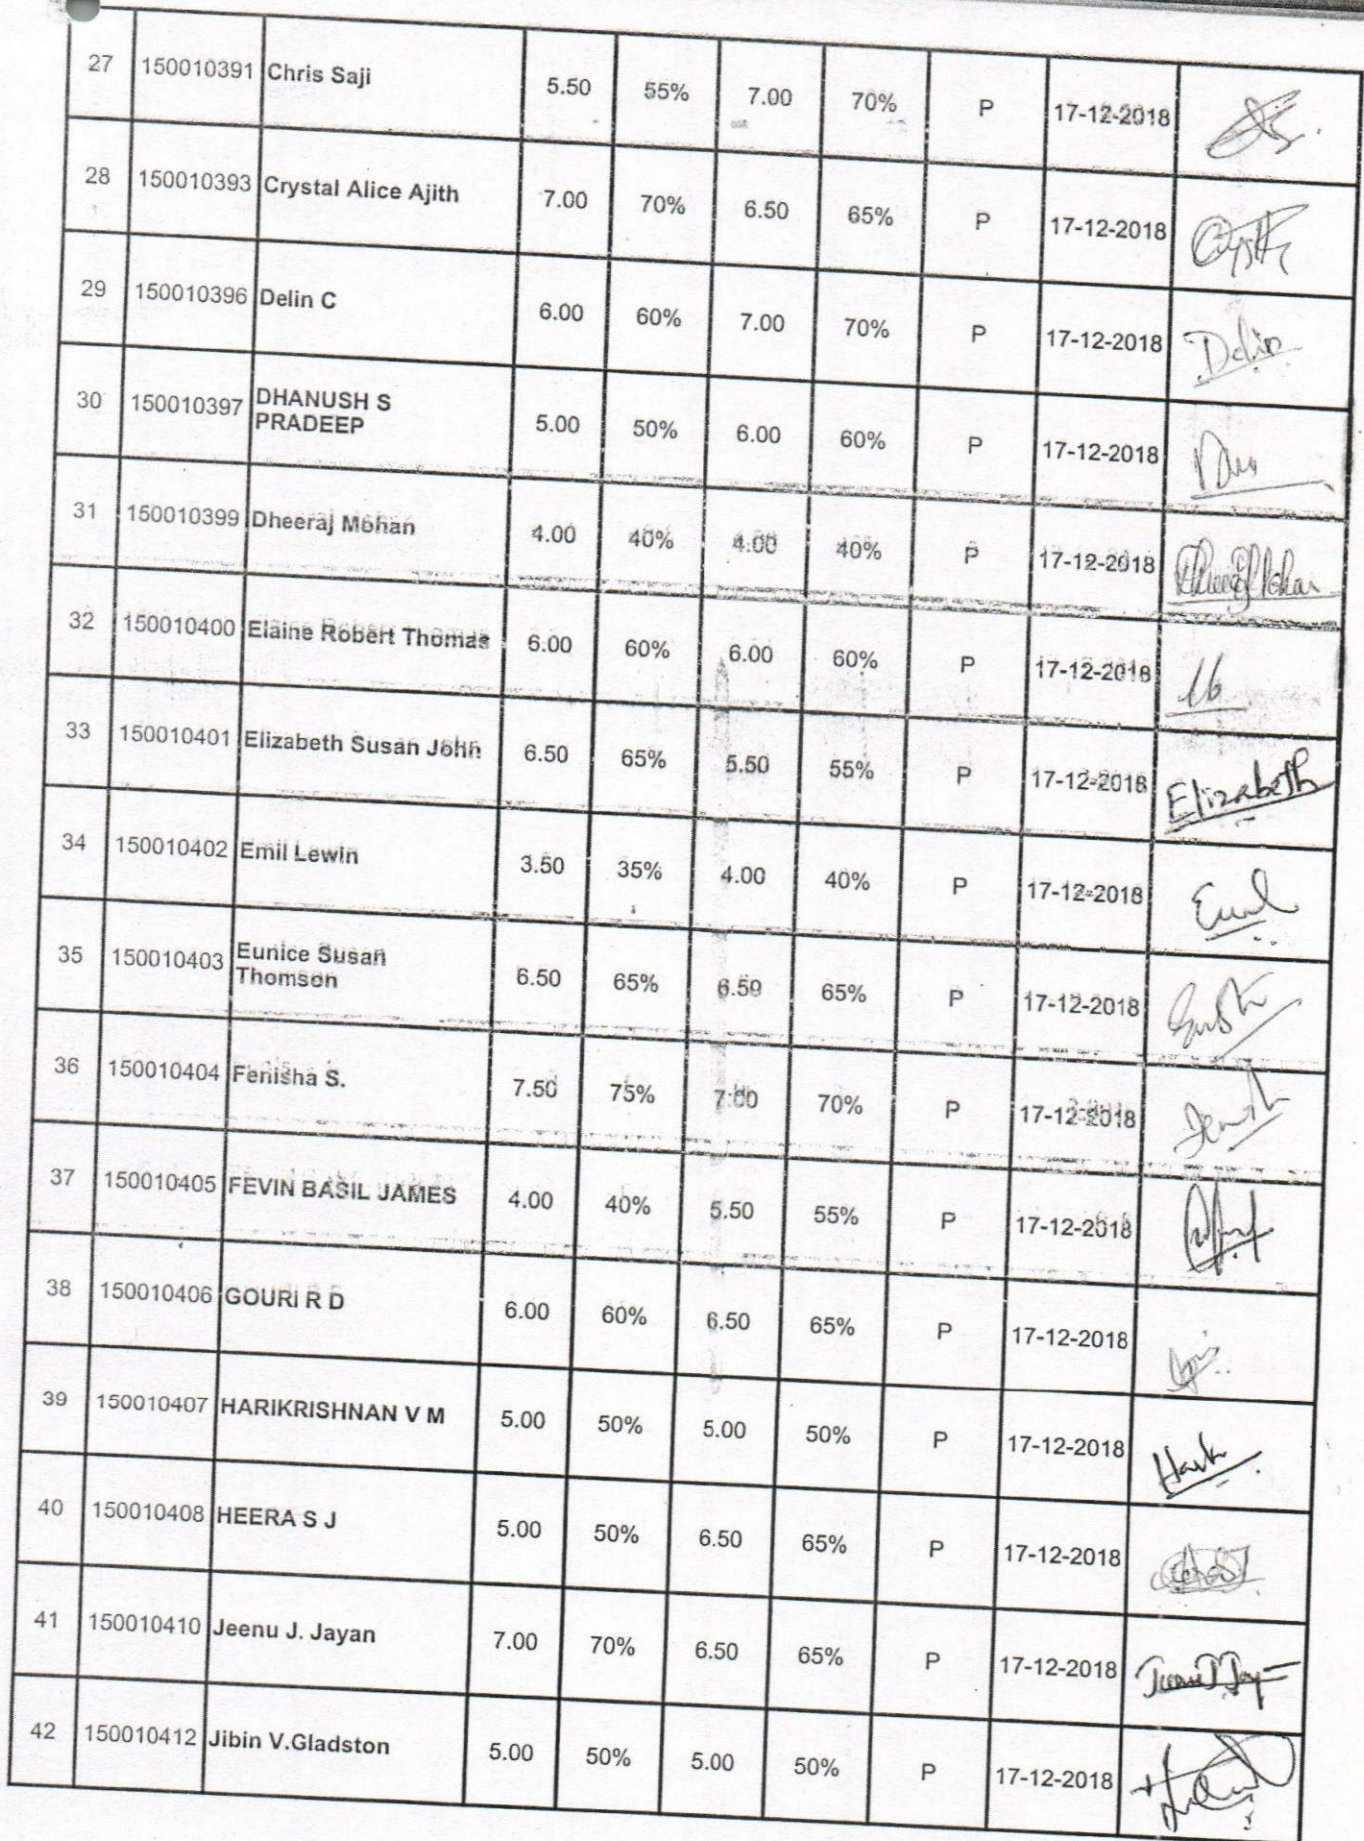 27 150010391 Chris Saji 5.50 55% 7.00 70% P 17-12-2018
28 150010393 Crystal Alice Ajith 7.00 70% 6.50 65% P 17-12-2018
29 150010396 Delin C 6.00 60% 7.00 70% P 17-12-2018 Delin
30 150010397 DHANUSH S
PRADEEP 5.00 50% 6.00 60% P 17-12-2018
31 150010399 Dheeraj Mohan 4.00 40% 4.00 40% P 17-12-2018
32 150010400 Elaine Robert Thomas 6.00 60% 6.00 60% P 17-12-2018
33 150010401 Elizabeth Susan John 6.50 65% 5.50 55% P 17-12-2018 Elizabeth
34 150010402 Emil Lewin 3.50 35% 4.00 40% P 17-12-2018
35 150010403 Eunice Susan
Thomson 6.50 65% 6.50 65% P 17-12-2018
36 150010404 Fenisha S. 7.50 75% 7.00 70% P 17-12-2018
37 150010405 FEVIN BASIL JAMES 4.00 40% 5.50 55% P 17-12-2018
38 150010406 GOURI R D 6.00 60% 6.50 65% P 17-12-2018
39 150010407 HARIKRISHNAN V M 5.00 50% 5.00 50% P 17-12-2018
40 150010408 HEERA S J 5.00 50% 6.50 65% P 17-12-2018
41 150010410 Jeenu J. Jayan 7.00 70% 6.50 65% P 17-12-2018
42 150010412 Jibin V.Gladston 5.00 50% 5.00 50% P 17-12-2018